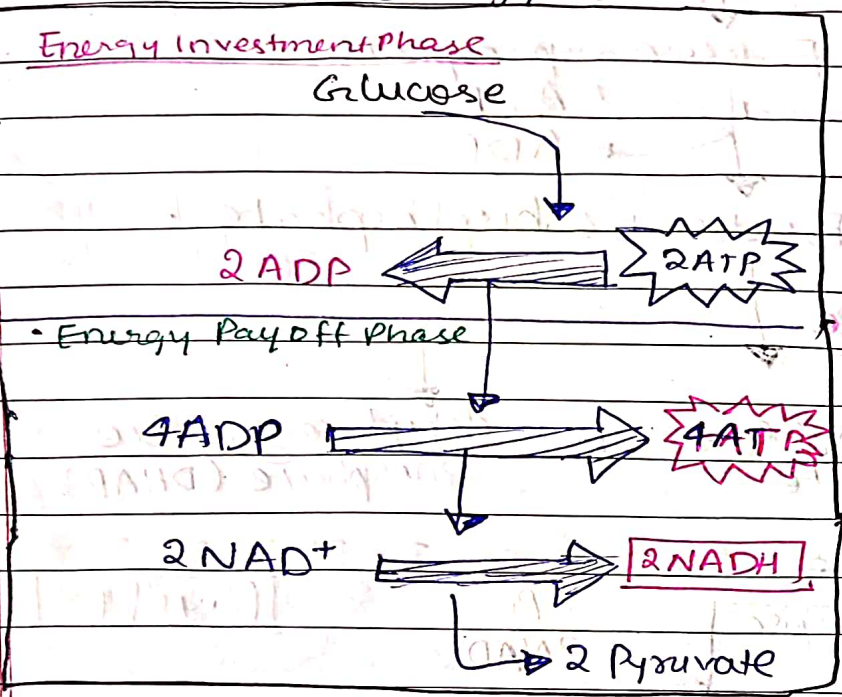 Energy Investment Phase
Glucose
2 ADP 2ATP
• Energy Pay off Phase
4ADP 4ATP
2 NAD+ 2NADH
2 Pyruvate